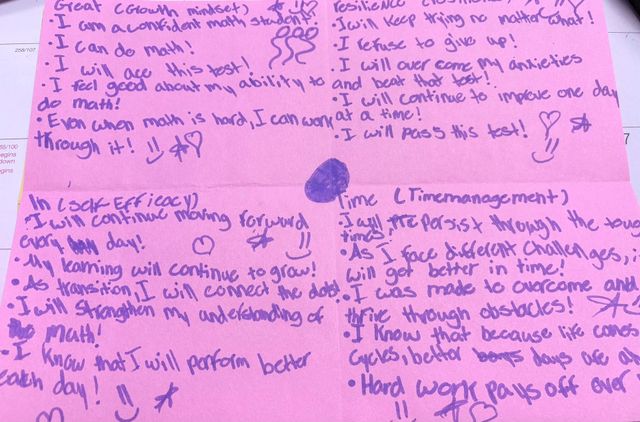 Great (Growth mindset)
• I am a confident math student!
• I can do math!
• I will ace this test!
• I feel good about my ability to
do math!
• Even when math is hard, I can work
through it!
resilience
• I will keep trying no matter what!
• I refuse to give up!
• I will over come my anxieties
and beat that test!
• I will continue to improve one day
at a time!
• I will pass this test!
In (self-Efficacy)
• I will continue moving forward
every day!
• My learning will continue to grow!
• As transition, I will connect the dots!
• I will strengthen my understanding of
math!
• I know that I will perform better
each day!
Time (Timemanagement)
• I will persist through the
times,
• As I face different challenges,
will get better in time!
• I was made to overcome and
thrive through obstacles!
• I know that because life comes
cycles, better days are
• Hard work pays off over
258/107
55/100
begins
down
egins
7